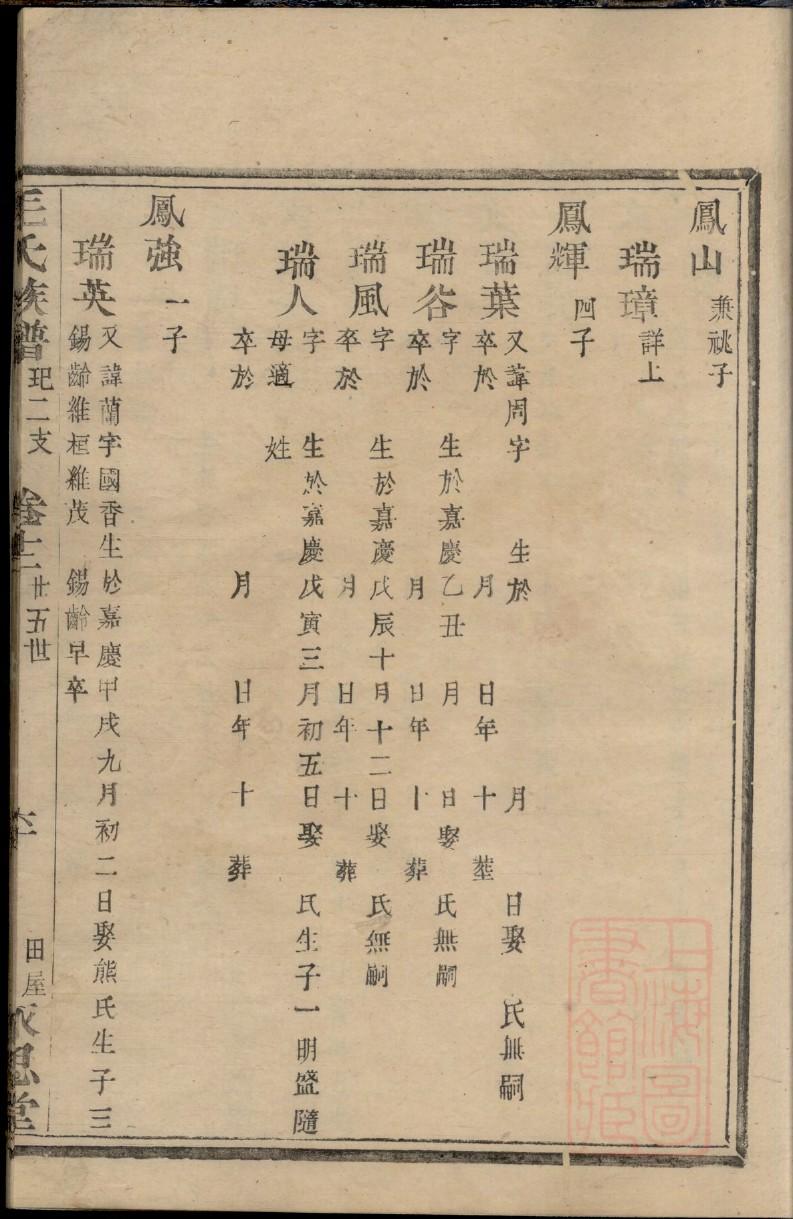 鳳山 兼祧子
瑞璋 詳上
鳳輝 四子
瑞葉 又諱周字 生於 月 日娶 氏無嗣
卒於 月 日年 十 葬
瑞谷 字 生於嘉慶乙丑 月 日娶 氏無嗣
卒於 月 日年 十 葬
瑞風 字 生於嘉慶戊辰十月十二日娶 氏無嗣
卒於 月 日年 十 葬
瑞人 字 生於嘉慶戊寅三月初五日娶 氏生子一明盛隨
母適 姓
卒於 月 日年 十 葬
鳳強 一子
瑞英 又諱蘭字國香生於嘉慶甲戌九月初二日娶熊氏生子三
錫齡維桓維茂 錫齡早卒
王氏族譜 玘二支 卷十二 廿五世 田屋 永思堂
上海圖書館藏